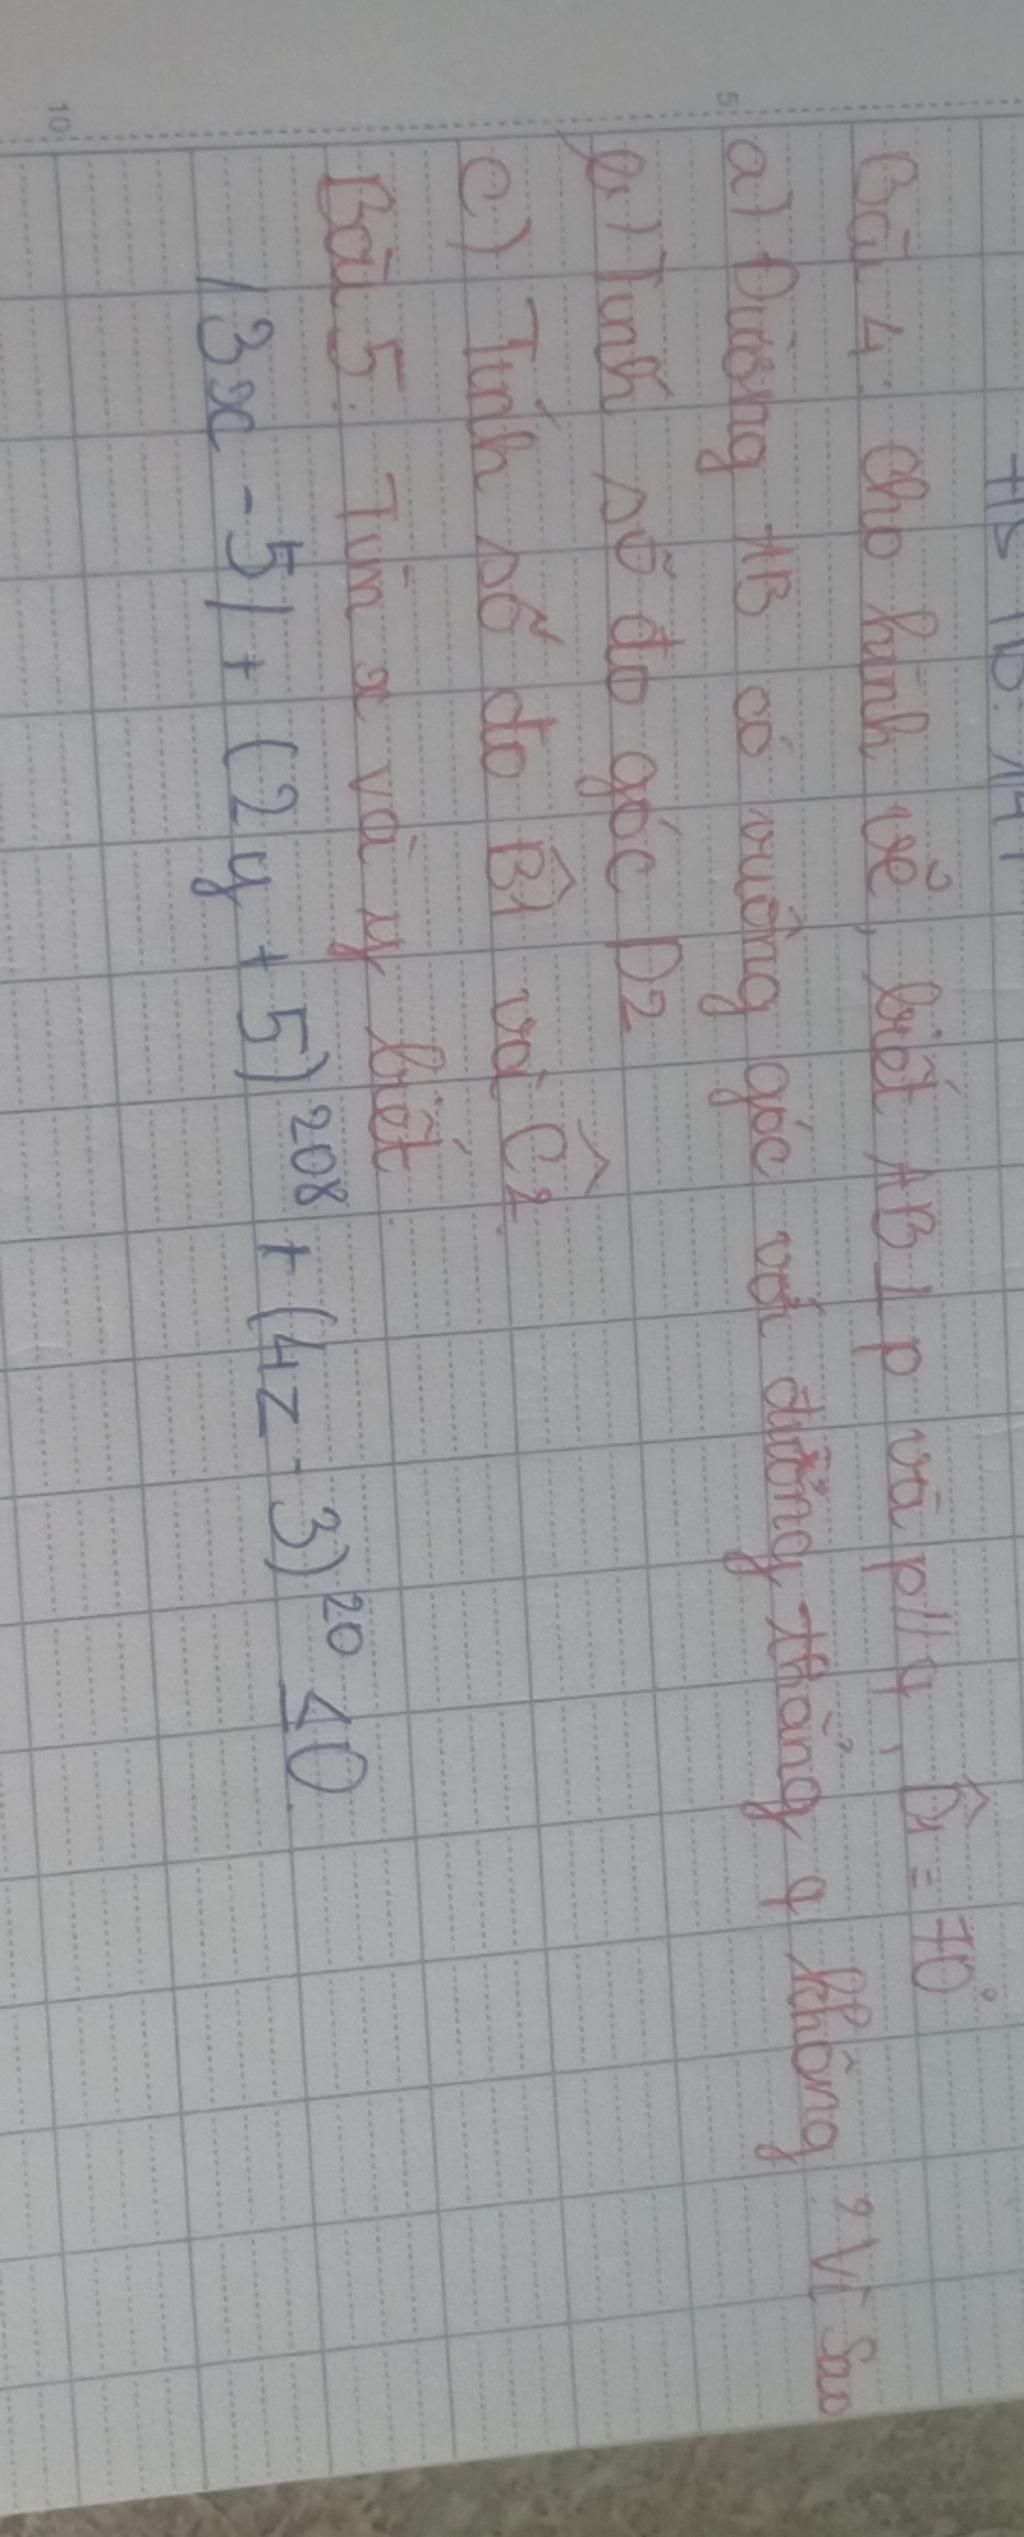 Bài 4: Cho hình vẽ, biết AB ⊥ p và p//q, D̂1 = 70°
a) Đường AB có vuông góc với đường thẳng q không? Vì Sao
b) Tính số đo góc D2
c) Tính số đo B̂1 và Ĉ2
Bài 5: Tìm x và y biết
|3x - 5| + (2y + 5)²⁰⁸ + (4z - 3)²⁰ ≤ 0
5
10